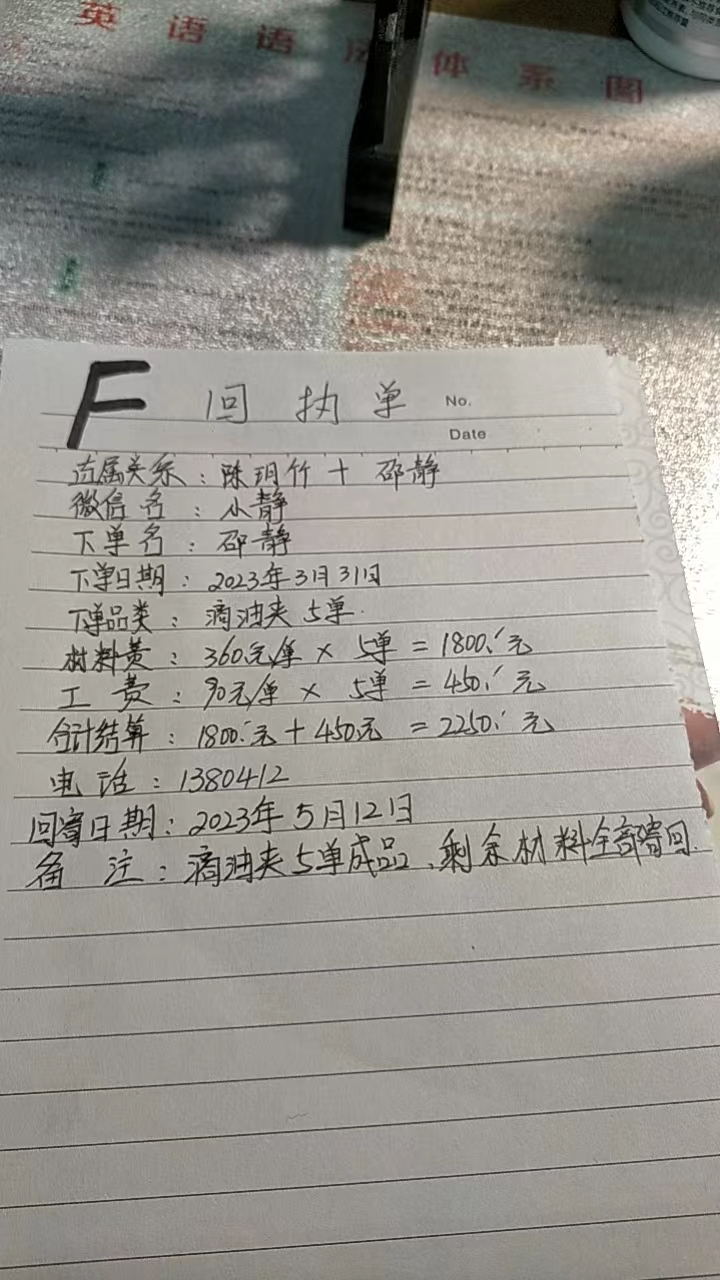 英语语法体系图
F 回执单 No.
Date
直属关系：陈玥竹 + 邵静
微信名：小静
下单名：邵静
下单日期：2023年3月31日
下单品类：滴油夹 5单.
材料费：360元/单 × 5单 = 1800.元
工费：90元/单 × 5单 = 450.元
合计结算：1800.元 + 450元 = 2250.元
电话：1380412
回寄日期：2023年5月12日
备注：滴油夹5单成品、剩余材料全部寄回.